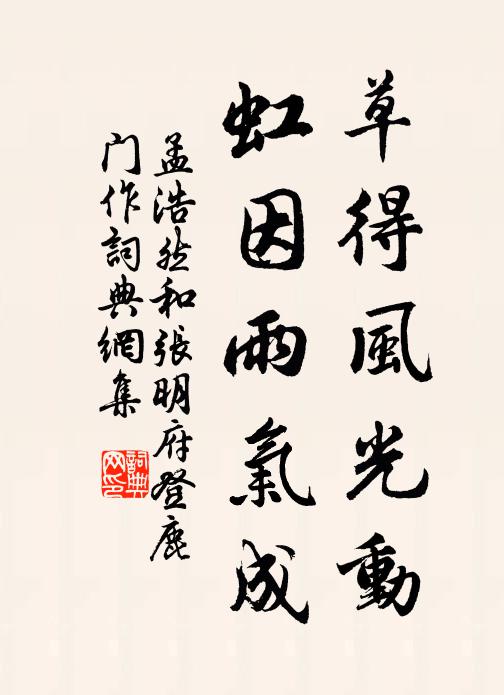 草得風光動
虹因雨氣成
孟浩然和張明府登鹿
门作詞典網集
詞典
网印